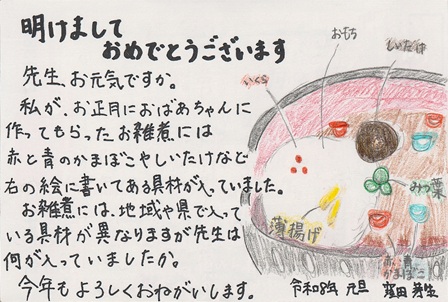 明けまして
おめでとうございます
先生、お元気ですか。
私が、お正月におばあちゃんに
作ってもらったお雑煮には
赤と青のかまぼこやしいたけなど
右の絵に書いてある具材が入っていました。
お雑煮には、地域や県で入って
いる具材が異なりますが先生は
何が入っていましたか。
今年もよろしくおねがいします。
おもち
しいたけ
いくら
みつ葉
薄揚げ
赤・青
かまぼこ
令和8年 元旦
窪田